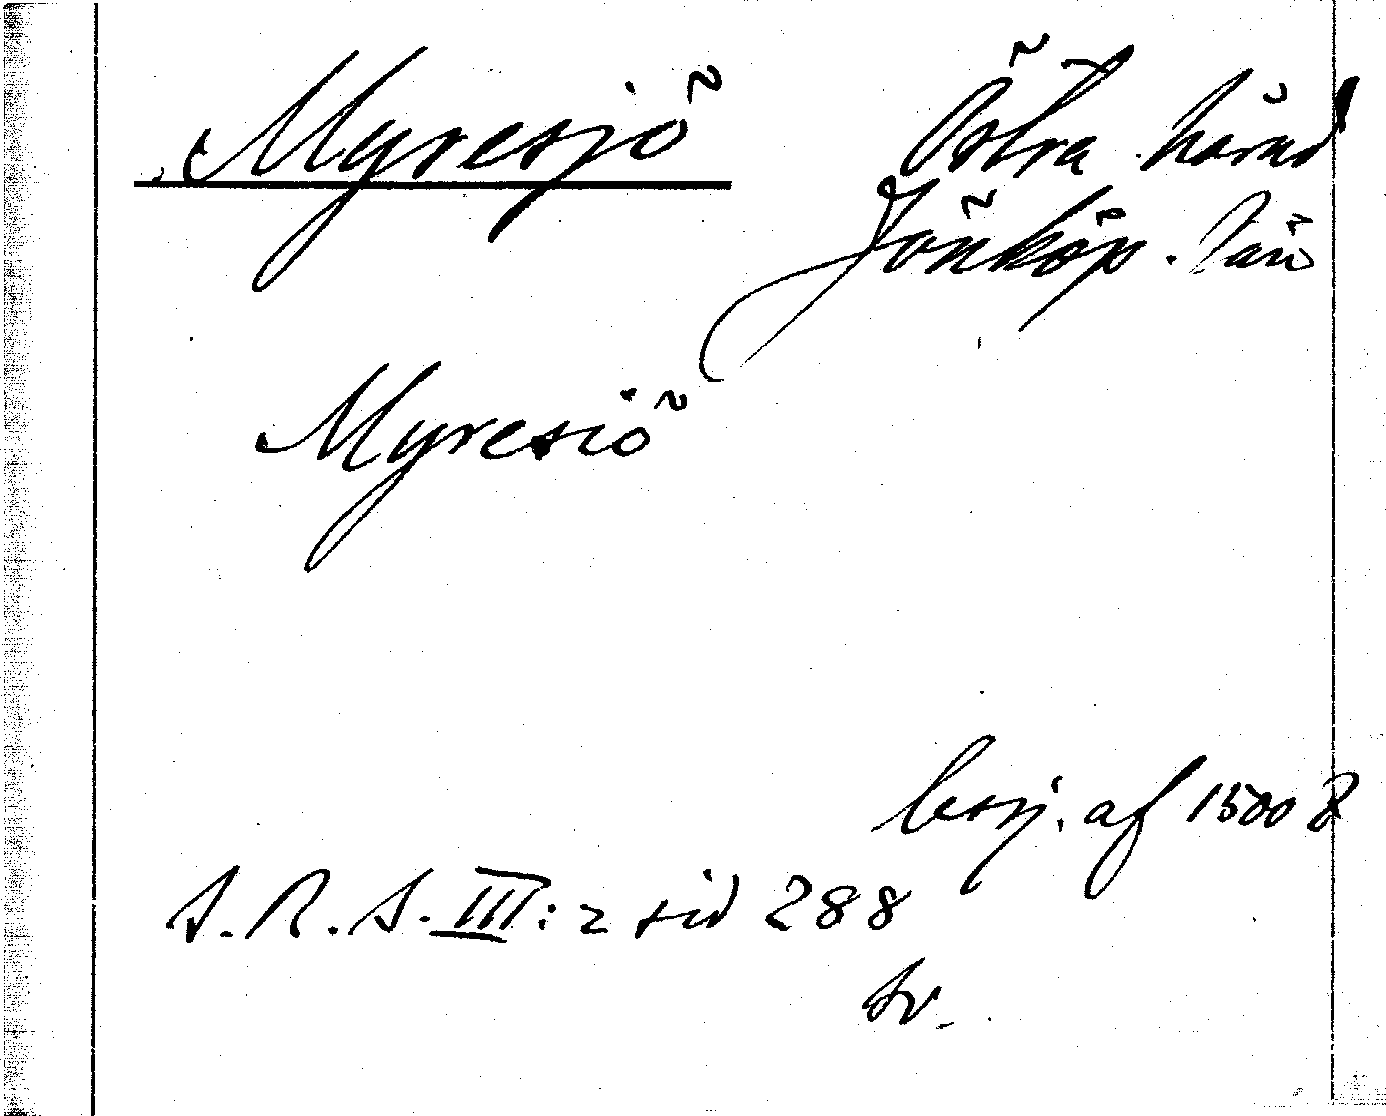 Myresjö
Östra härad
Jönköp. län
Myresiö
börj. af 1500 t
S. R. S. III: 2 sid 288
sv.